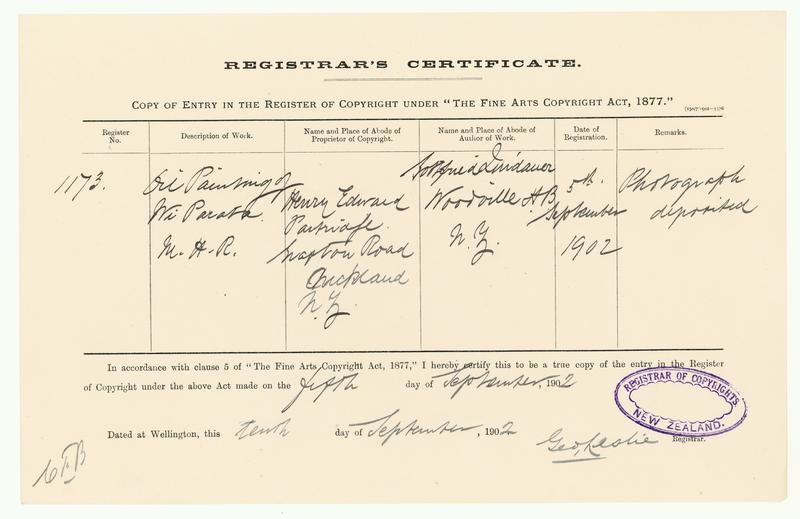 REGISTRAR'S CERTIFICATE.
COPY OF ENTRY IN THE REGISTER OF COPYRIGHT UNDER "THE FINE ARTS COPYRIGHT ACT, 1877."
Register No.
Description of Work.
Name and Place of Abode of Proprietor of Copyright.
Name and Place of Abode of Author of Work.
Date of Registration.
Remarks.
1173.
Oil Painting of
Wi Parata
M. H. R.
Henry Edward
Partridge
Grafton Road
Auckland
N. Z.
Gottfried Lindauer
Woodville H. B.
N. Z.
5th.
September
1902
Photograph
deposited
In accordance with clause 5 of "The Fine Arts Copyright Act, 1877," I hereby certify this to be a true copy of the entry in the Register
of Copyright under the above Act made on the fifth day of September, 1902
REGISTRAR OF COPYRIGHTS
NEW ZEALAND.
Dated at Wellington, this tenth day of September, 1902
Geo, Leslie
Registrar.